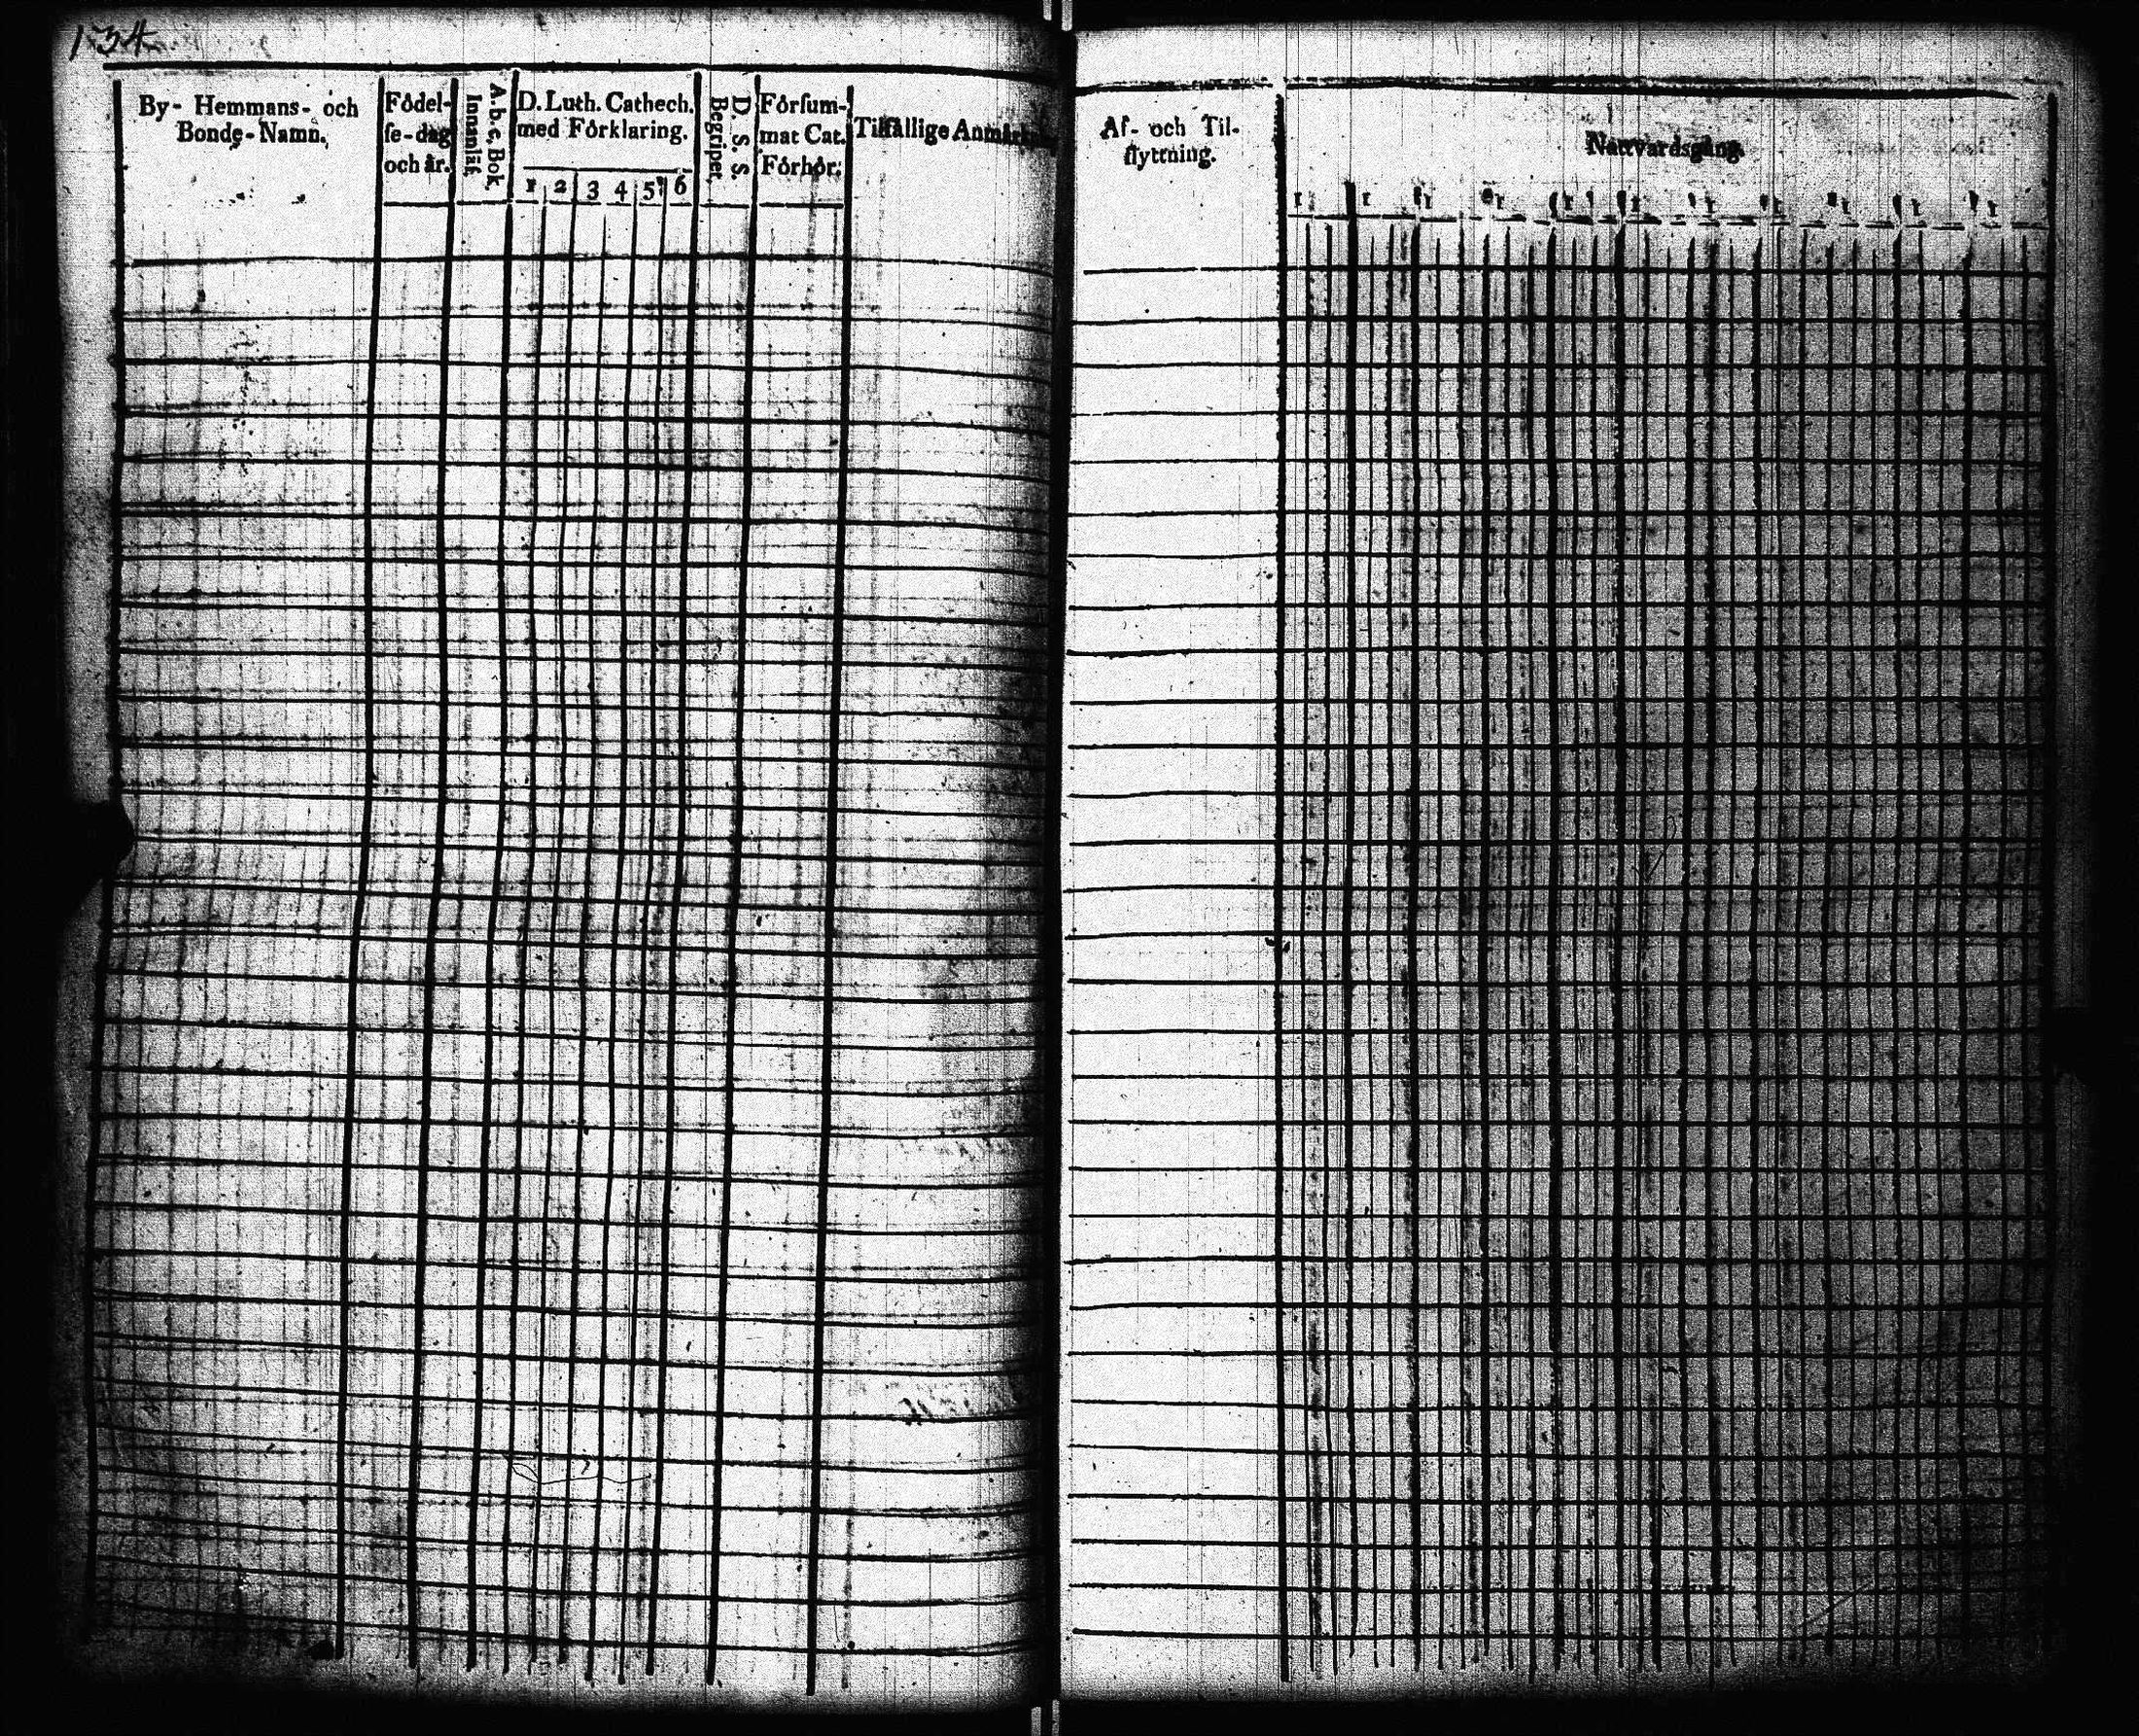 134
By- Hemmans- och
Bonde-Namn.
Födel-
se-dag
och år.
A.b.c. Bok.
Innanläs.
D. Luth. Cathech.
med Förklaring.
1 2 3 4 5 6
D. S. S.
Begriper.
Försum-
mat Cat.
Förhör.
Tilfällige
Af- och Til-
flyttning.
Nattvardsgång.
1 1 1 1 1 1 1 1 1 1 1